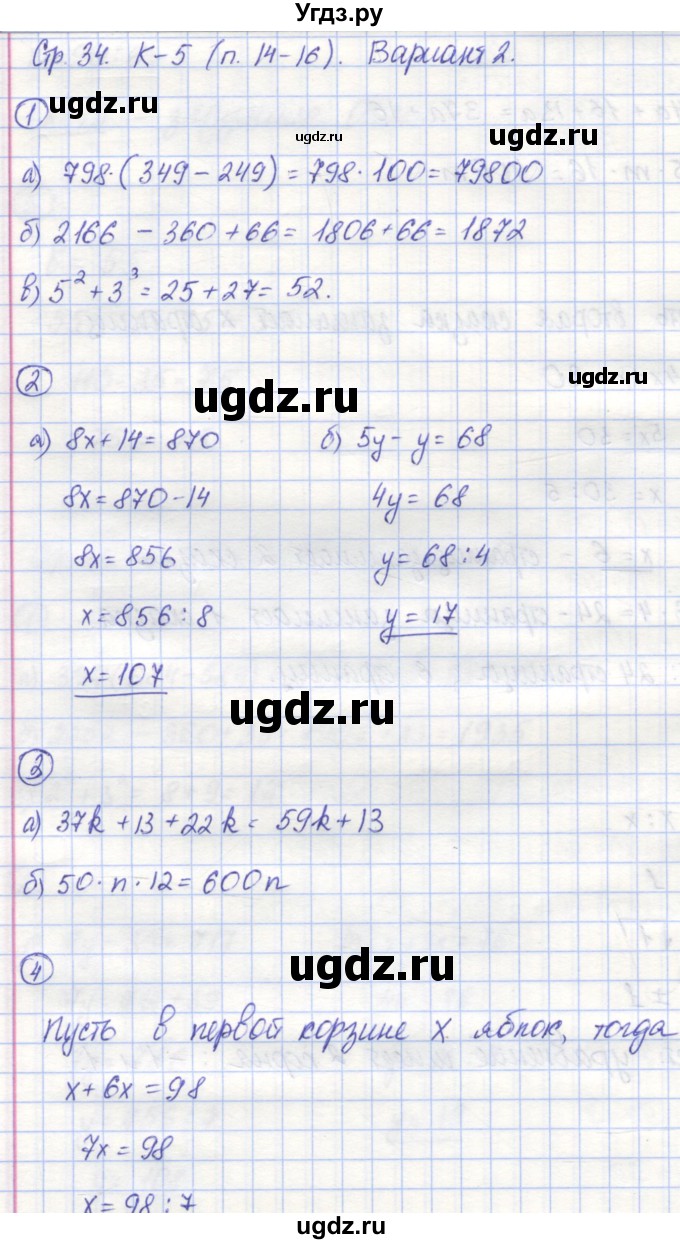 Угдз.ру
Стр. 34. К-5 (п. 14-16). Вариант 2.
1
а) 798·(349-249)=798·100=79800
б) 2166 - 360 + 66 = 1806+66 = 1872
в) 5²+3³=25+27= 52.
2
а) 8x+14=870
б) 5y- y = 68
8x=870-14
4y= 68
8x=856
y= 68:4
x=856:8
y=17
x=107
3
а) 37k +13 +22k = 59k+13
б) 50· n · 12=600n
4
Пусть в первой корзине x яблок, тогда
x+ 6x = 98
7x = 98
x= 98:7
ugdz.ru
ugdz.ru
ugdz.ru
ugdz.ru
ugdz.ru
ugdz.ru
ugdz.ru